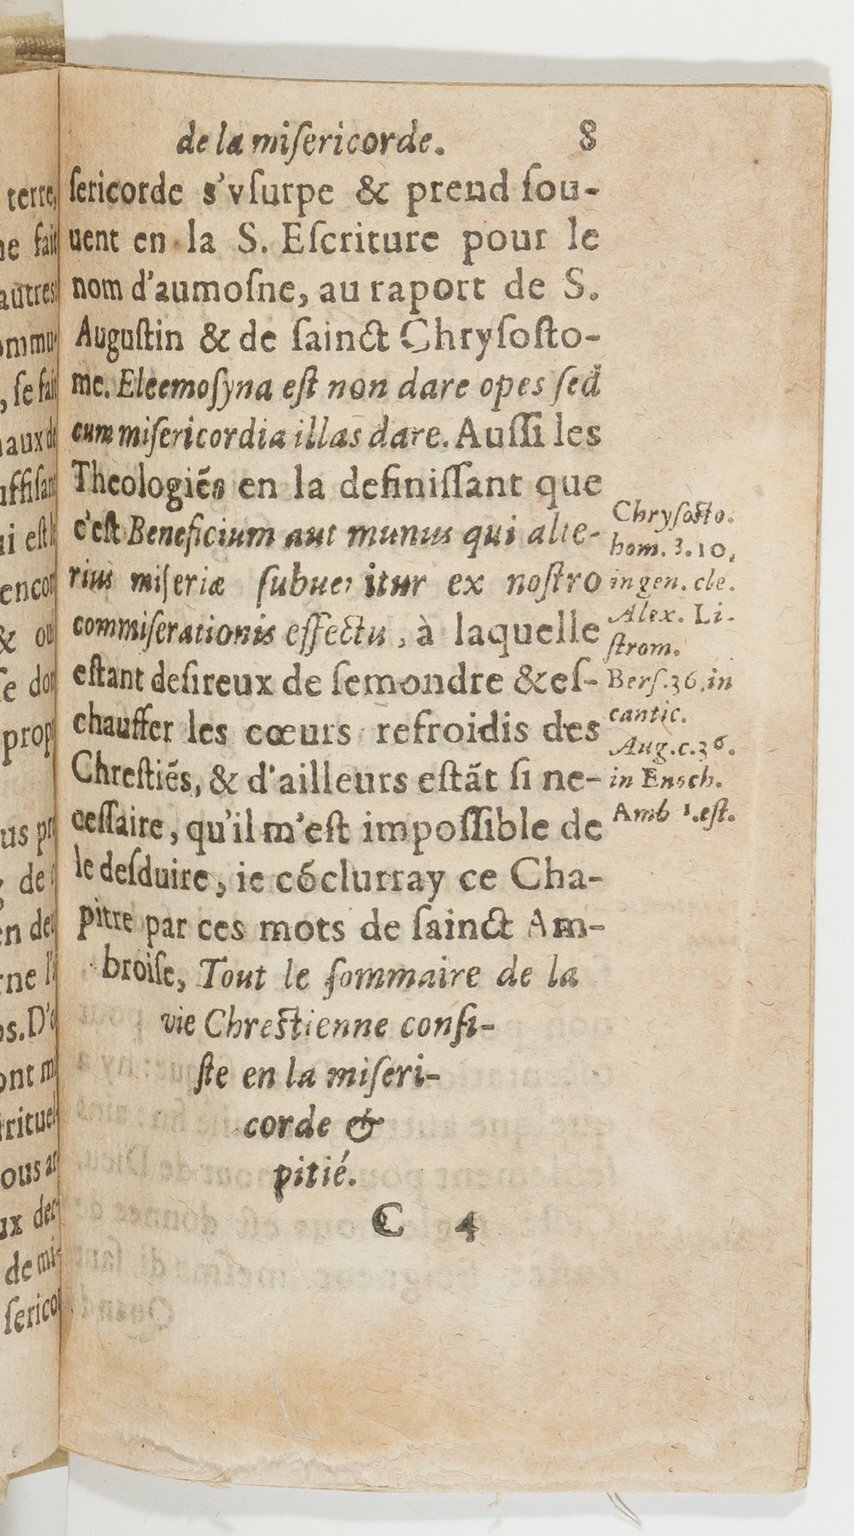 de la miſericorde. 8
ſericorde s'vſurpe & prend ſou-
uent en la S. Eſcriture pour le
nom d'aumoſne, au raport de S.
Auguſtin & de ſainct Chryſoſto-
me. Eleemoſyna eſt non dare opes ſed
cum miſericordia illas dare. Auſſi les
Theologiẽs en la definiſſant que
c'eſt Beneficium aut munus qui alte-
rius miſeriæ ſubue itur ex noſtro
commiſerationis effectu, à laquelle
eſtant deſireux de ſemondre & eſ-
chauffer les cœurs refroidis des
Chreſtiẽs, & d'ailleurs eſtãt ſi ne-
ceſſaire, qu'il m'eſt impoſſible de
le deſduire, ie cóclurray ce Cha-
pitre par ces mots de ſainct Am-
broiſe, Tout le ſommaire de la
vie Chreſtienne conſi-
ſte en la miſeri-
corde &
pitié.
C 4
Chryſoſto.
hom. 3.10,
in gen. cle.
Alex. Li-
ſtrom.
Berſ.36.in
cantic.
Aug.c.36.
in Ench.
Amb 1.eſt.
terre,
ne fait
autres
ommu
, ſe fait
naux de
uffiſan
ui eſt
encor
& ou
ſe do
prop
us pr
de
en de
rne l'
os. D'
ont m
rituel
ous a
ux de
de mi-
ſerico